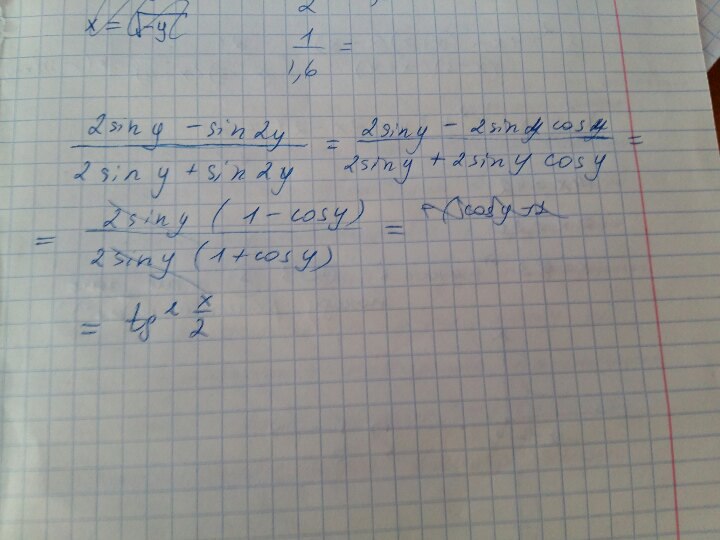 x =
2
1
1,6 =
2 sin y - sin 2y / 2 sin y + sin 2y = 2 sin y - 2 sin y cos y / 2 sin y + 2 sin y cos y =
= 2 sin y (1 - cos y) / 2 sin y (1 + cos y) =
= tg² x/2